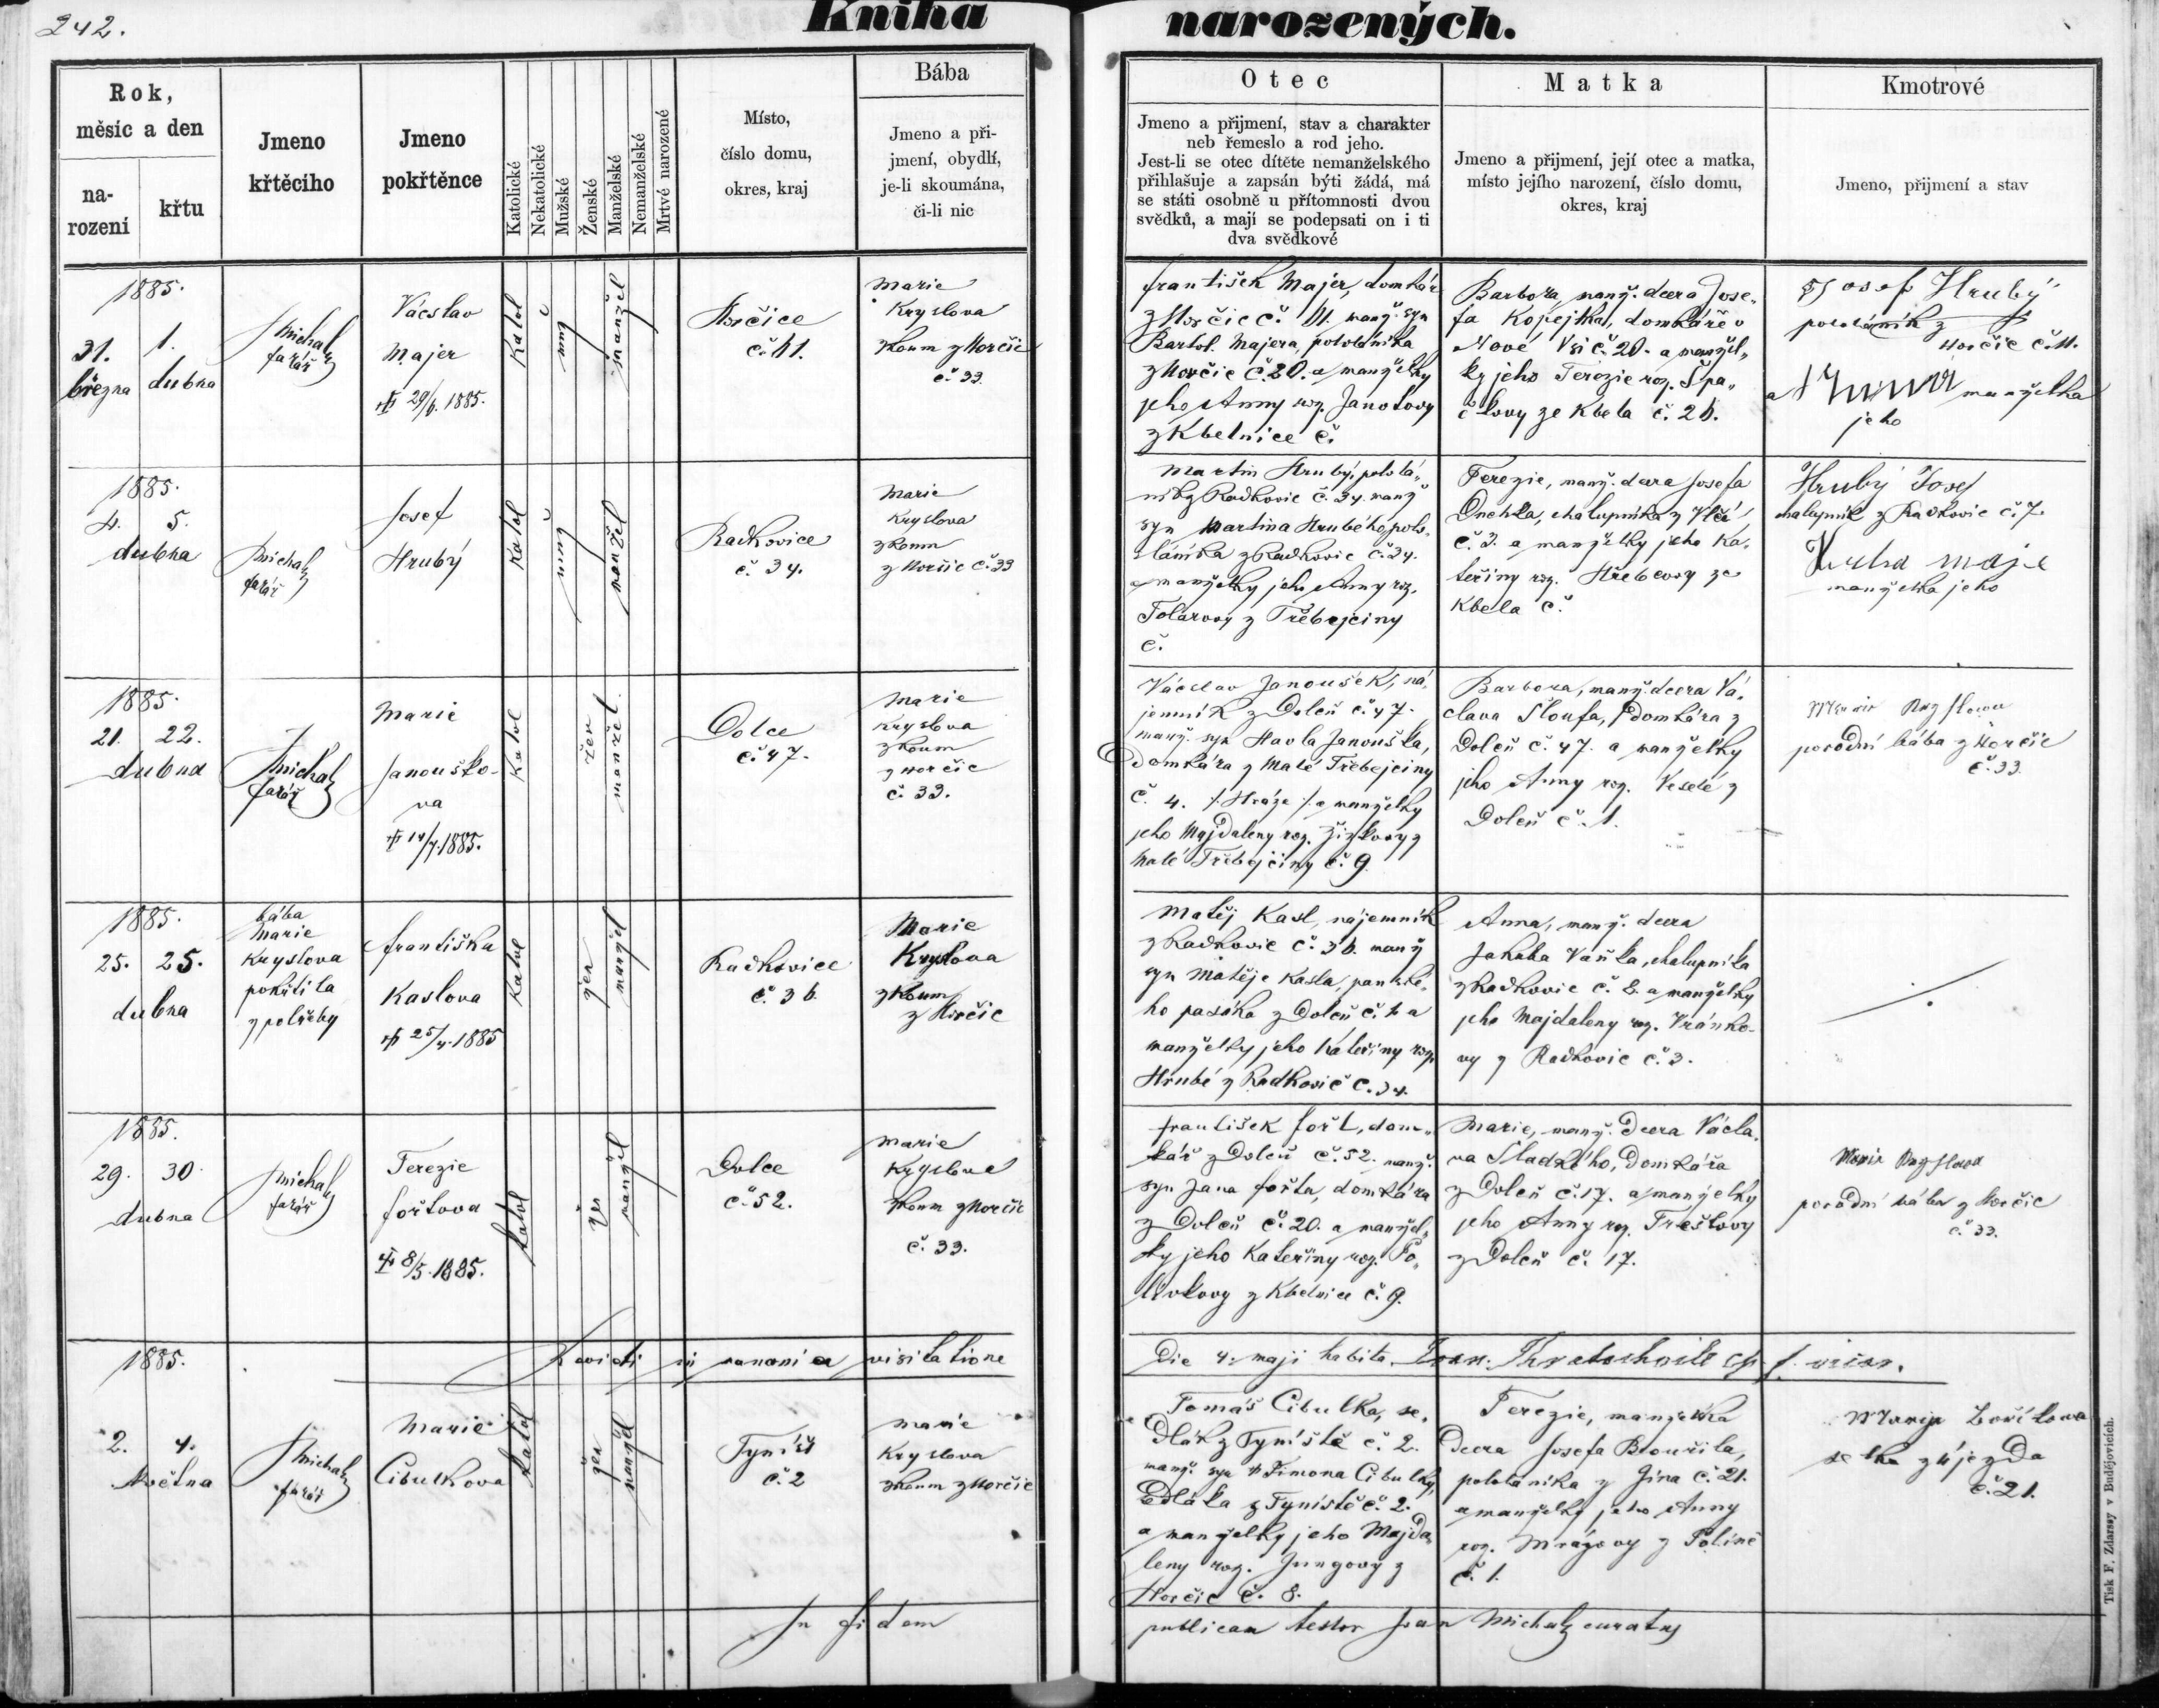 242.
Kniha narozených.
Rok,
měsíc a den
na-
rození
křtu
Jmeno
křtěcího
Jmeno
pokřtěnce
Katolické
Nekatolické
Mužské
Ženské
Manželské
Nemanželské
Mrtvé narozené
Místo,
číslo domu,
okres, kraj
Bába
Jmeno a při-
jmení, obydlí,
je-li skoumána,
či-li nic
Otec
Jmeno a přijmení, stav a charakter
neb řemeslo a rod jeho.
Jest-li se otec dítěte nemanželského
přihlašuje a zapsán býti žádá, má
se státi osobně u přítomnosti dvou
svědků, a mají se podepsati on i ti
dva svědkové
Matka
Jmeno a přijmení, její otec a matka,
místo jejího narození, číslo domu,
okres, kraj
Kmotrové
Jmeno, přijmení a stav
1885.
31. 1.
března dubna
Michal
farář
Václav
Majer
29/6. 1885.
Katol
muž
manžel
Horčice
č. 11.
Marie
Kryslova
zkoum z Horčic
č. 33.
František Majer, domkár
z Horčic č. 11. manž. syn
Bartol. Majera, pololánika
z Horčic č. 20. a manželky
jeho Anny roz. Janotovy
z Kbelnice č.
Barbora, manž. dcera Jose-
fa Kopejtka, domkáře v
Nové Vsi č. 20. a manžel-
ky jeho Terezie roz. Špa-
čkovy ze Kbela č. 26.
Josef Hrubý
pololánník z
Horčic č. 11.
a Anna manželka
jeho
1885.
4. 5.
dubna
Michal
farář
Josef
Hrubý
Katol
muž
manžel
Radkovice
č. 34.
Marie
Kryslova
zkoum
z Horčic č. 33
Martin Hrubý, pololá-
ník z Radkovic č. 34. manž
syn Martina Hrubého, polo-
lánika z Radkovic č. 34.
a manželky jeho Anny roz.
Tolarovy z Třebejciny
č.
Terezie, manž. dcera Josefa
chalupníka z Vlčí
č. 3. a manželky jeho Ka-
teřiny roz. Hřebcovy ze
Kbela č.
Hrubý Josef
chalupník z Radkovic č. 7.
manželka jeho
1885.
21. 22.
dubna
Michal
farář
Marie
Janouško-
va
14/7. 1885.
Katol
žen
manžel.
Dolce
č. 47.
Marie
Kryslova
zkoum
z Horčic
č. 33.
Václav Janoušek, ná-
jemník z Dolců č. 47.
manž. syn Havla Janouška,
domkára z Malé Třebejciny
č. 4. /Hráze/ a manželky
jeho Majdaleny roz. Žižkovy z
Malé Třebejciny č. 9.
Barbora, manž. dcera Vá-
clava Sloufa, domkára z
Dolců č. 47. a manželky
jeho Anny roz. Veselé z
Dolců č. 1.
Marie Kryslowa
porodní bába z Horčic
č. 33.
1885.
25. 25.
dubna
bába
Marie
Kryslova
pokřtila
z potřeby
Františka
Kaslova
25/4. 1885
Katol
žen
manžel
Radkovice
č. 36.
Marie
Kryslova
zkoum
z Horčic
Matěj Kasl, nájemník
z Radkovic č. 36. manž
syn Matěje Kasla, panské-
ho pasáka z Dolců č. 1. a
manželky jeho Kateřiny roz
Hrubé z Radkovic č. 34.
Anna, manž. dcera
Jakuba Vaňka, chalupníka
z Radkovic č. 8. a manželky
jeho Majdaleny roz. Vránko-
vy z Radkovic č. 3.
1885.
29. 30.
dubna
Michal
farář
Terezie
Fořtova
8/5. 1885.
Katol
žen
manžel
Dolce
č. 52.
Marie
Kryslova
zkoum z Horčic
č. 33.
František Fořt, dom-
kář z Dolců č. 52. manž.
syn Jana Fořta, domkára
z Dolců č. 20. a manžel-
ky jeho Kateřiny roz. Po-
lívkovy z Kbelnice č. 9.
Marie, manž. dcera Václa-
va Sladkého, domkářa
z Dolců č. 17. a manželky
jeho Anny roz. Treštovy
z Dolců č. 17.
Marie Kryslova
porodní bába z Horčic
č. 33.
1885.
Revidi in canonica visitatione
Die 4. maji habita.
2. 4.
května
Michal
farář
Marie
Cibulkova
Katol
žen
manžel
Týniště
č. 2
Marie
Kryslova
zkoum z Horčic
Tomáš Cibulka, se-
dlák z Týniště č. 2.
manž. syn Šimona Cibulky,
sedláka z Týniště č. 2.
a manželky jeho Majda-
leny roz. Jungovy z
Horčic č. 8.
Terezie, manželka
dcera Josefa Brouřila,
pololánika z Jína č. 21.
a manželky jeho Anny
roz. Mrázovy z Polině
č. 1.
selka z Újezda
č. 21.
In fidem
publicam testor Joan Michal curatus
Tisk F. Zdarssy v Budějovicích.